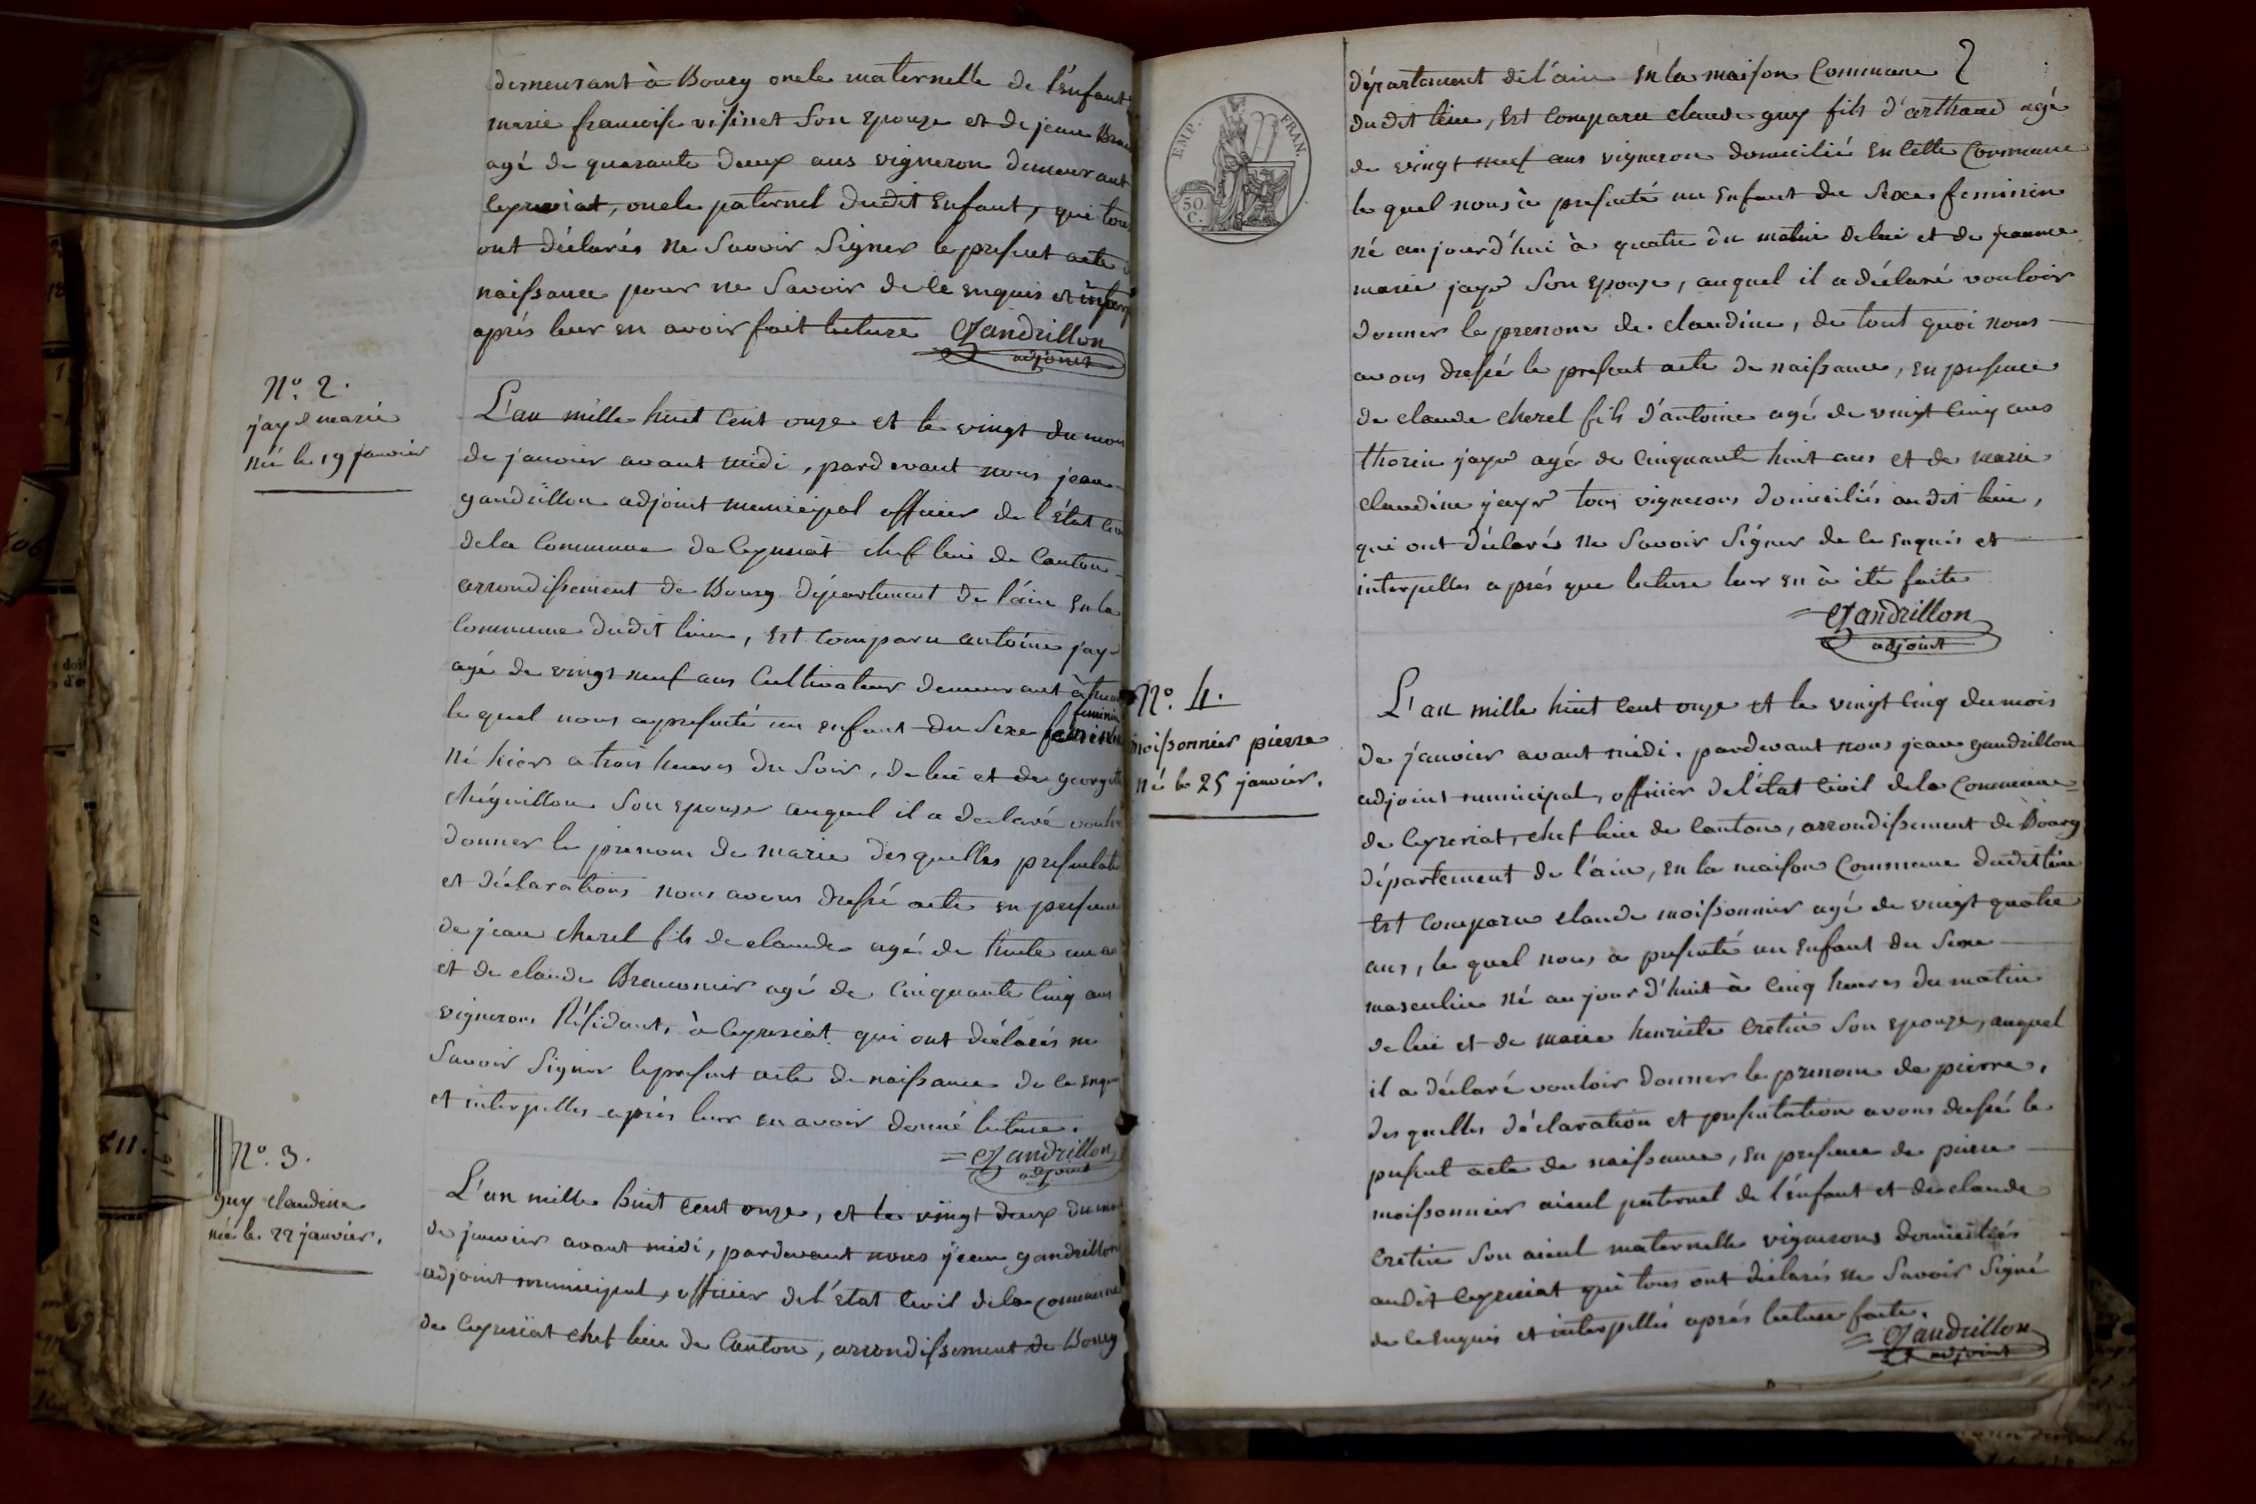 demeurant à Bourg oncle maternelle de l'enfant
marie francoise visinet son epouze et de jean
agé de quarante deux ans vigneron demeurant
Ceyzeriat, oncle paternel dudit enfant, qui tous
ont déclarés ne savoir signer le present acte
naissance pour ne savoir de ce enquis et
après leur en avoir fait lecture Gandrillon
adjoint
N.º 2.
jayr marie
née le 19 janvier
L'an mille huit cent onze et le vingt du mois
de janvier avant midi, pardevant nous jean
gandrillon adjoint municipal officier de l'état
de la Commune de Ceyzeriat chef lieu de Canton
arrondissement de Bourg département de l'ain en la
Commune dudit lieu, est comparu antoine jayr
agé de vingt neuf ans Cultivateur demeurant
feminin
le quel nous a presenté un enfant du Sexe
né hier a trois heures du soir, de lui et de
chéguillon son epouze auquel il a declaré
donner le prenom de marie desquelles
et déclarations nous avons dressé acte en presence
de jean cherel fils de claude agé de trente
et de claude agé de cinquante cinq ans
vignerons Résidants à Ceyzeriat qui ont déclarés ne
savoir signer le present acte de naissance de ce
et interpellés après leur en avoir donné lecture.
= Gandrillon
adjoint
N.º 3.
guy claudine
née le 22 janvier.
L'an mille huit cent onze, et le vingt deux du mois
de janvier avant midi, pardevant nous jean gandrillon
adjoint municipal, officier de l'état Civil de la commune
de Ceyzeriat chef lieu de Canton, arrondissement de Bourg
EMP. FRAN.
50
C.
département de l'ain en la maison Commune
dudit lieu, est comparu claude guy fils d'arthaud agé
de vingt neuf ans vigneron domicilié en cette Commune
le quel nous à presenté un enfant du Sexe feminin
né aujourd'hui à quatre du matin de lui et de jeanne
marie jayr son epouze, auquel il a déclaré vouloir
donner le prenom de claudine, de tout quoi nous
avons dressé le present acte de naissance, en presence
de claude cherel fils d'antoine agé de vingt cinq ans
thorin jayr agé de cinquante huit ans et de marie
claudine jayr tous vignerons domiciliés audit lieu,
qui ont déclarés ne savoir signer de ce enquis et
interpelles après que lecture leur en à été faite
= Gandrillon
adjoint
N.º 4.
moissonnier pierre
né le 25 janvier.
L'an mille huit cent onze et le vingt cinq du mois
de janvier avant midi. pardevant nous jean gandrillon
adjoint municipal, officier de l'état Civil de la Commune
de Ceyzeriat, chef lieu de Canton, arrondissement de Bourg
département de l'ain, en la maison Commune dudit lieu
est comparu claude moissonnier agé de vingt quatre
ans, le quel nous a presenté un enfant du Sexe
masculin né aujourd'huit à cinq heures du matin
de lui et de marie henriete cretin son epouze, auquel
il a déclaré vouloir donner le prenom de pierre,
des quelles déclaration et presentation avons dressé le
present acte de naissance, en presence de pierre
moissonnier aieul paternel de l'enfant et de claude
cretin son aieul maternelle vignerons domiciliés
audit Ceyzeriat qui tous ont déclarés ne savoir signé
de ce enquis et interpellés après lecture faite.
= Gandrillon
adjoint